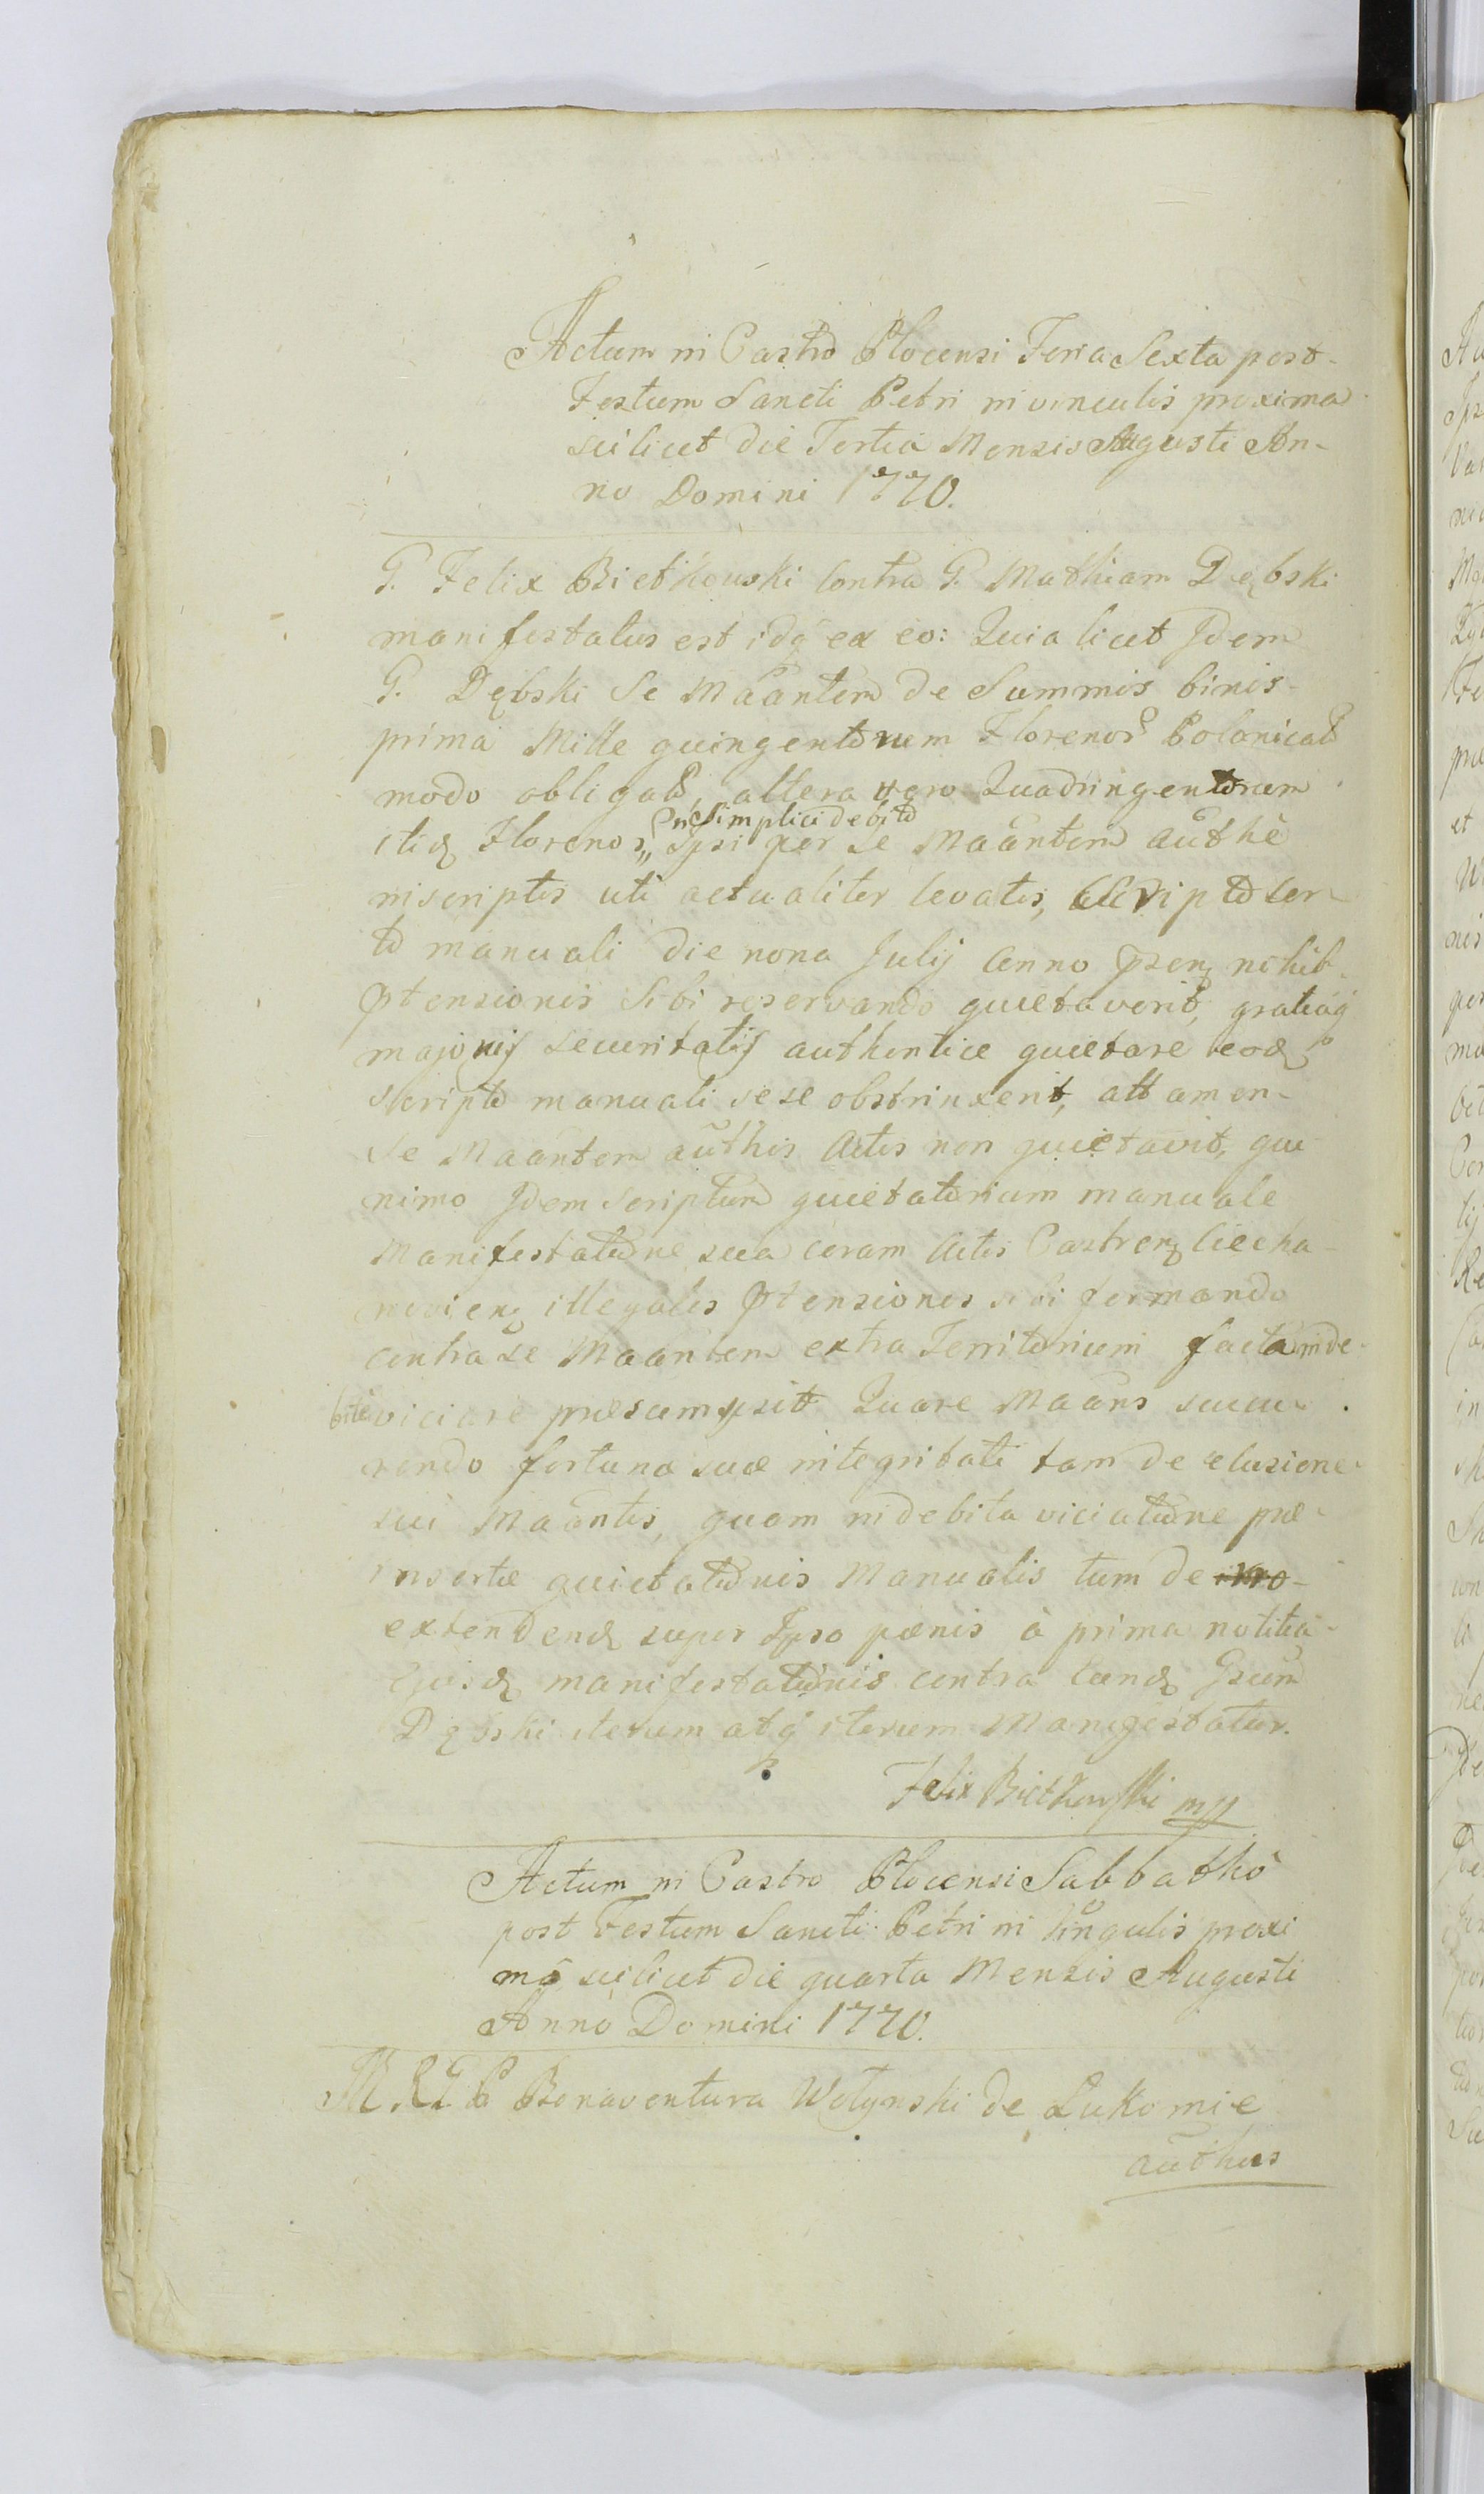 Actum in Castro Plocensi Feria Sexta post
Festum Sancti Petri in vinculis proxima
scilicet die Tertia Mensis Augusti An-
no Domini 1770.
G. Felix Bietkowski contra G. Mathiam Dębski
manifestatus est idq̃ ex eo: Quia licet Idem
G. Dębski Se Maantem de Summis binis
prima Mille quingentorum Florenor Polonical
modo obligat, altera vero Quadringentorum
itid Florenor,, Ipsi per Se Maantem authe
in Simplici debito
inscriptis uti actualiter levatis, Scripto Ser-
to manuali die nona Julij Anno Prsen nihil
Ptensionis Sibi reservando quietaverit, gratiaq̃
majoris securitatis authentice quietare eod
Scripto manuali sese obstrinxerit, attamen
Se Maantem authis Actis non quietavit, qui
nimo Idem Scriptum quietatorium manuale
Manifestatione sua coram Actis Castren Ciecha
novien illegales Ptensiones sibi formando
contra Se Maantem extra Territorium facta inde-
bite viciare præsumpsit Quare Maans sucu-
rendo fortunæ suæ integritati tam de elusione
sui Maantis, quam indebita viciatione præ-
insertæ quietationis Manualis tum de
extendend super Ipso pænis à prima notitia
Ejusd manifestationis contra Eund Gsum
Dębski iterum atq̃ iterum Manifestatur.
Felix Bietkowski mp
Actum in Castro Plocensi Sabbatho
post Festum Sancti Petri in Vingulis proxi
mo scilicet die quarta Mensis Augusti
Anno Domini 1770.
Bonaventura Wołynski de Łukomie
authus